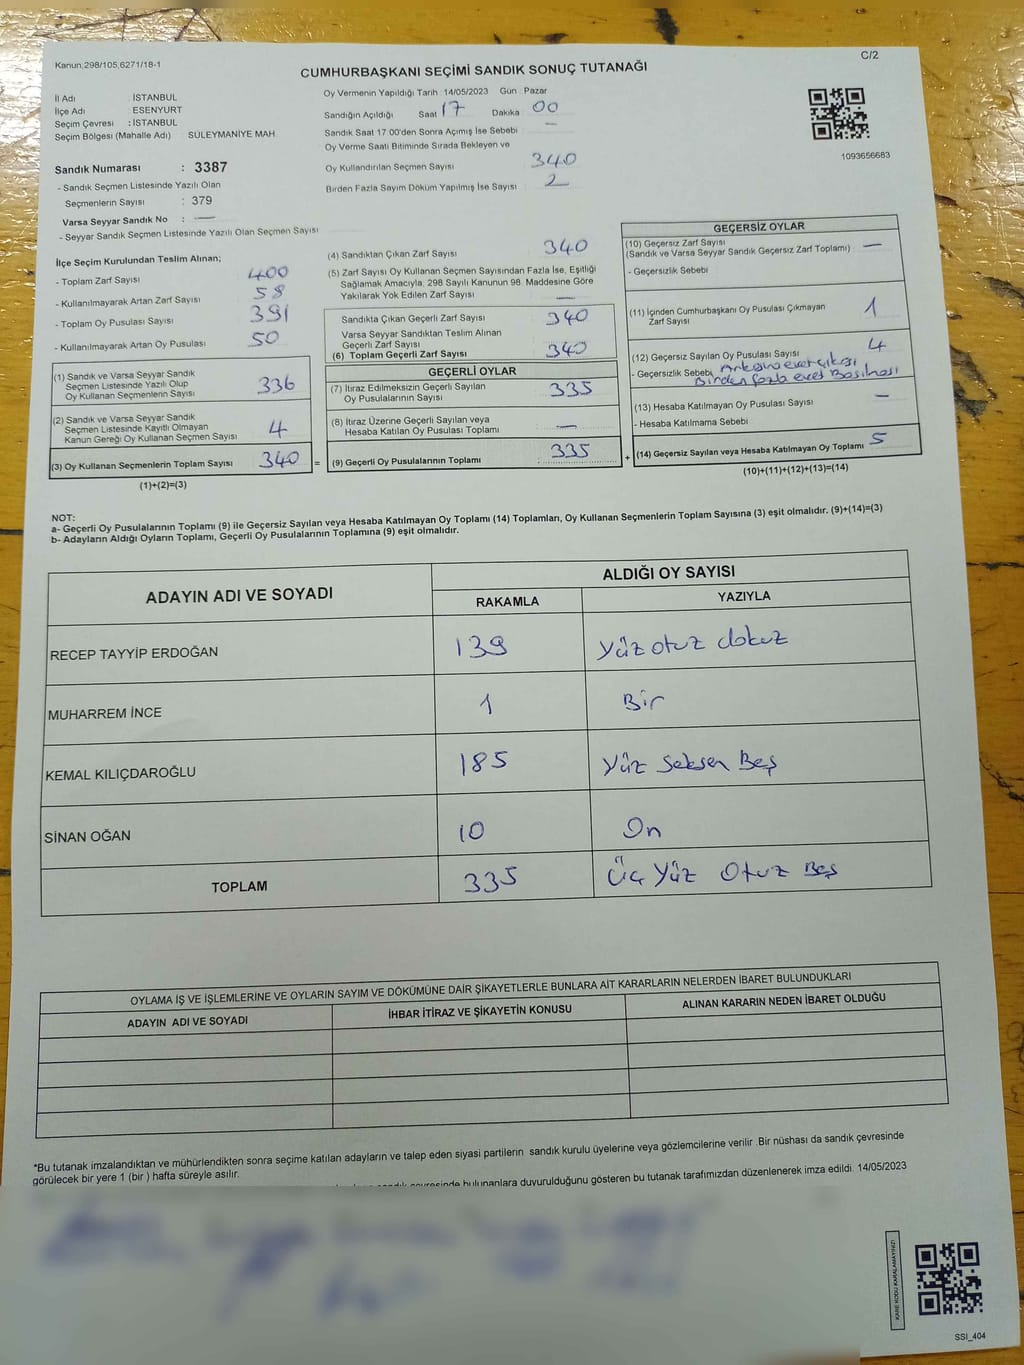 Kanun:298/105,6271/18-1
C/2
CUMHURBAŞKANI SEÇİMİ SANDIK SONUÇ TUTANAĞI
İl Adı : İSTANBUL
İlçe Adı : ESENYURT
Seçim Çevresi : İSTANBUL
Seçim Bölgesi (Mahalle Adı) SÜLEYMANİYE MAH.
Oy Vermenin Yapıldığı Tarih : 14/05/2023 Gün : Pazar
Sandığın Açıldığı Saat 17 Dakika 00
Sandık Saat 17 00'den Sonra Açımış İse Sebebi —
Oy Verme Saati Bitiminde Sırada Bekleyen ve
Oy Kullandırılan Seçmen Sayısı 340
Birden Fazla Sayım Döküm Yapılmış İse Sayısı 2
1093656683
Sandık Numarası : 3387
- Sandık Seçmen Listesinde Yazılı Olan
Seçmenlerin Sayısı : 379
Varsa Seyyar Sandık No : —
- Seyyar Sandık Seçmen Listesinde Yazılı Olan Seçmen Sayısı
İlçe Seçim Kurulundan Teslim Alınan;
- Toplam Zarf Sayısı 400
- Kullanılmayarak Artan Zarf Sayısı 58
- Toplam Oy Pusulası Sayısı 391
- Kullanılmayarak Artan Oy Pusulası 50
(1) Sandık ve Varsa Seyyar Sandık
Seçmen Listesinde Yazılı Olup
Oy Kullanan Seçmenlerin Sayısı 336
(2) Sandık ve Varsa Seyyar Sandık
Seçmen Listesinde Kayıtlı Olmayan
Kanun Gereği Oy Kullanan Seçmen Sayısı 4
(3) Oy Kullanan Seçmenlerin Toplam Sayısı 340 =
(1)+(2)=(3)
(4) Sandıktan Çıkan Zarf Sayısı 340
(5) Zarf Sayısı Oy Kullanan Seçmen Sayısından Fazla İse, Eşitliği
Sağlamak Amacıyla, 298 Sayılı Kanunun 98. Maddesine Göre
Yakılarak Yok Edilen Zarf Sayısı —
Sandıkta Çıkan Geçerli Zarf Sayısı 340
Varsa Seyyar Sandıktan Teslim Alınan
Geçerli Zarf Sayısı
(6) Toplam Geçerli Zarf Sayısı 340
GEÇERLİ OYLAR
(7) İtiraz Edilmeksizin Geçerli Sayılan
Oy Pusulalarının Sayısı 335
(8) İtiraz Üzerine Geçerli Sayılan veya
Hesaba Katılan Oy Pusulası Toplamı —
(9) Geçerli Oy Pusulalarının Toplamı 335 +
GEÇERSİZ OYLAR
(10) Geçersiz Zarf Sayısı —
(Sandık ve Varsa Seyyar Sandık Geçersiz Zarf Toplamı)
- Geçersizlik Sebebi
(11) İçinden Cumhurbaşkanı Oy Pusulası Çıkmayan
Zarf Sayısı 1
(12) Geçersiz Sayılan Oy Pusulası Sayısı 4
- Geçersizlik Sebebi evet
Birden fazla evet Basılması
(13) Hesaba Katılmayan Oy Pusulası Sayısı —
- Hesaba Katılmama Sebebi
(14) Geçersiz Sayılan veya Hesaba Katılmayan Oy Toplamı 5
(10)+(11)+(12)+(13)=(14)
NOT:
a- Geçerli Oy Pusulalarının Toplamı (9) ile Geçersiz Sayılan veya Hesaba Katılmayan Oy Toplamı (14) Toplamları, Oy Kullanan Seçmenlerin Toplam Sayısına (3) eşit olmalıdır. (9)+(14)=(3)
b- Adayların Aldığı Oyların Toplamı, Geçerli Oy Pusulalarının Toplamına (9) eşit olmalıdır.
ADAYIN ADI VE SOYADI
ALDIĞI OY SAYISI
RAKAMLA YAZIYLA
RECEP TAYYİP ERDOĞAN 139 Yüz otuz dokuz
MUHARREM İNCE 1 Bir
KEMAL KILIÇDAROĞLU 185 Yüz Seksen Beş
SİNAN OĞAN 10 On
TOPLAM 335 Üç Yüz Otuz Beş
OYLAMA İŞ VE İŞLEMLERİNE VE OYLARIN SAYIM VE DÖKÜMÜNE DAİR ŞİKAYETLERLE BUNLARA AİT KARARLARIN NELERDEN İBARET BULUNDUKLARI
ADAYIN ADI VE SOYADI İHBAR İTİRAZ VE ŞİKAYETİN KONUSU ALINAN KARARIN NEDEN İBARET OLDUĞU
*Bu tutanak imzalandıktan ve mühürlendikten sonra seçime katılan adayların ve talep eden siyasi partilerin sandık kurulu üyelerine veya gözlemcilerine verilir .Bir nüshası da sandık çevresinde
görülecek bir yere 1 (bir ) hafta süreyle asılır.
sandık çevresinde bulunanlara duyurulduğunu gösteren bu tutanak tarafımızdan düzenlenerek imza edildi. 14/05/2023
KARE KODU KARALAMAYINIZ!
SSI_404